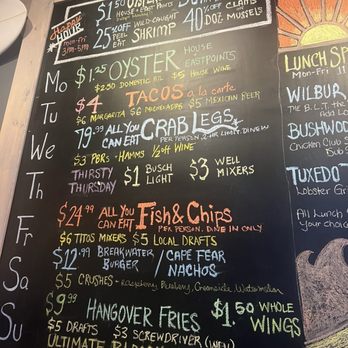 Happy HOUR
Mon-Fri
3pm-5pm
$1.50
HOUSE + EAST POINTS
25% OFF WILD-CAUGHT
PEEL EAT SHRIMP
40% OFF CLAMS
DOZ MUSSELS
Mo $1.25 OYSTER HOUSE EASTPOINTS
$2.50 DOMESTIC BTL $5 HOUSE WINE
Tu $4 TACOS a la carte
$6 MARGARITA $6 MICHELADAS $5 MEXICAN BEER
We 79.99 ALL YOU CAN EAT CRAB LEGS*
PER PERSON 2 HR LIMIT. DINE IN
$3 PBRs + HAMMS ½ OFF WINE
Th THIRSTY THURSDAY $1 BUSCH LIGHT $3 WELL MIXERS
Fr $24.99 ALL YOU CAN EAT Fish & Chips
PER PERSON. DINE IN ONLY
$6 TITOS MIXERS $5 LOCAL DRAFTS
Sa $12.99 BREAKWATER BURGER / CAPE FEAR NACHOS
$5 CRUSHES - Raspberry Parlany, Creamsicle, Watermelon
Su $9.99 HANGOVER FRIES $1.50 WHOLE WINGS
$5 DRAFTS $3 SCREWDRIVER (WELL)
ULTIMATE
LUNCH SP
Mon-Fri 11
WILBUR
The B.L.T.
Add Lo
BUSHWOO
Chicken Club S
TUXEDO T
Lobster Gr
All Lunch
your choic